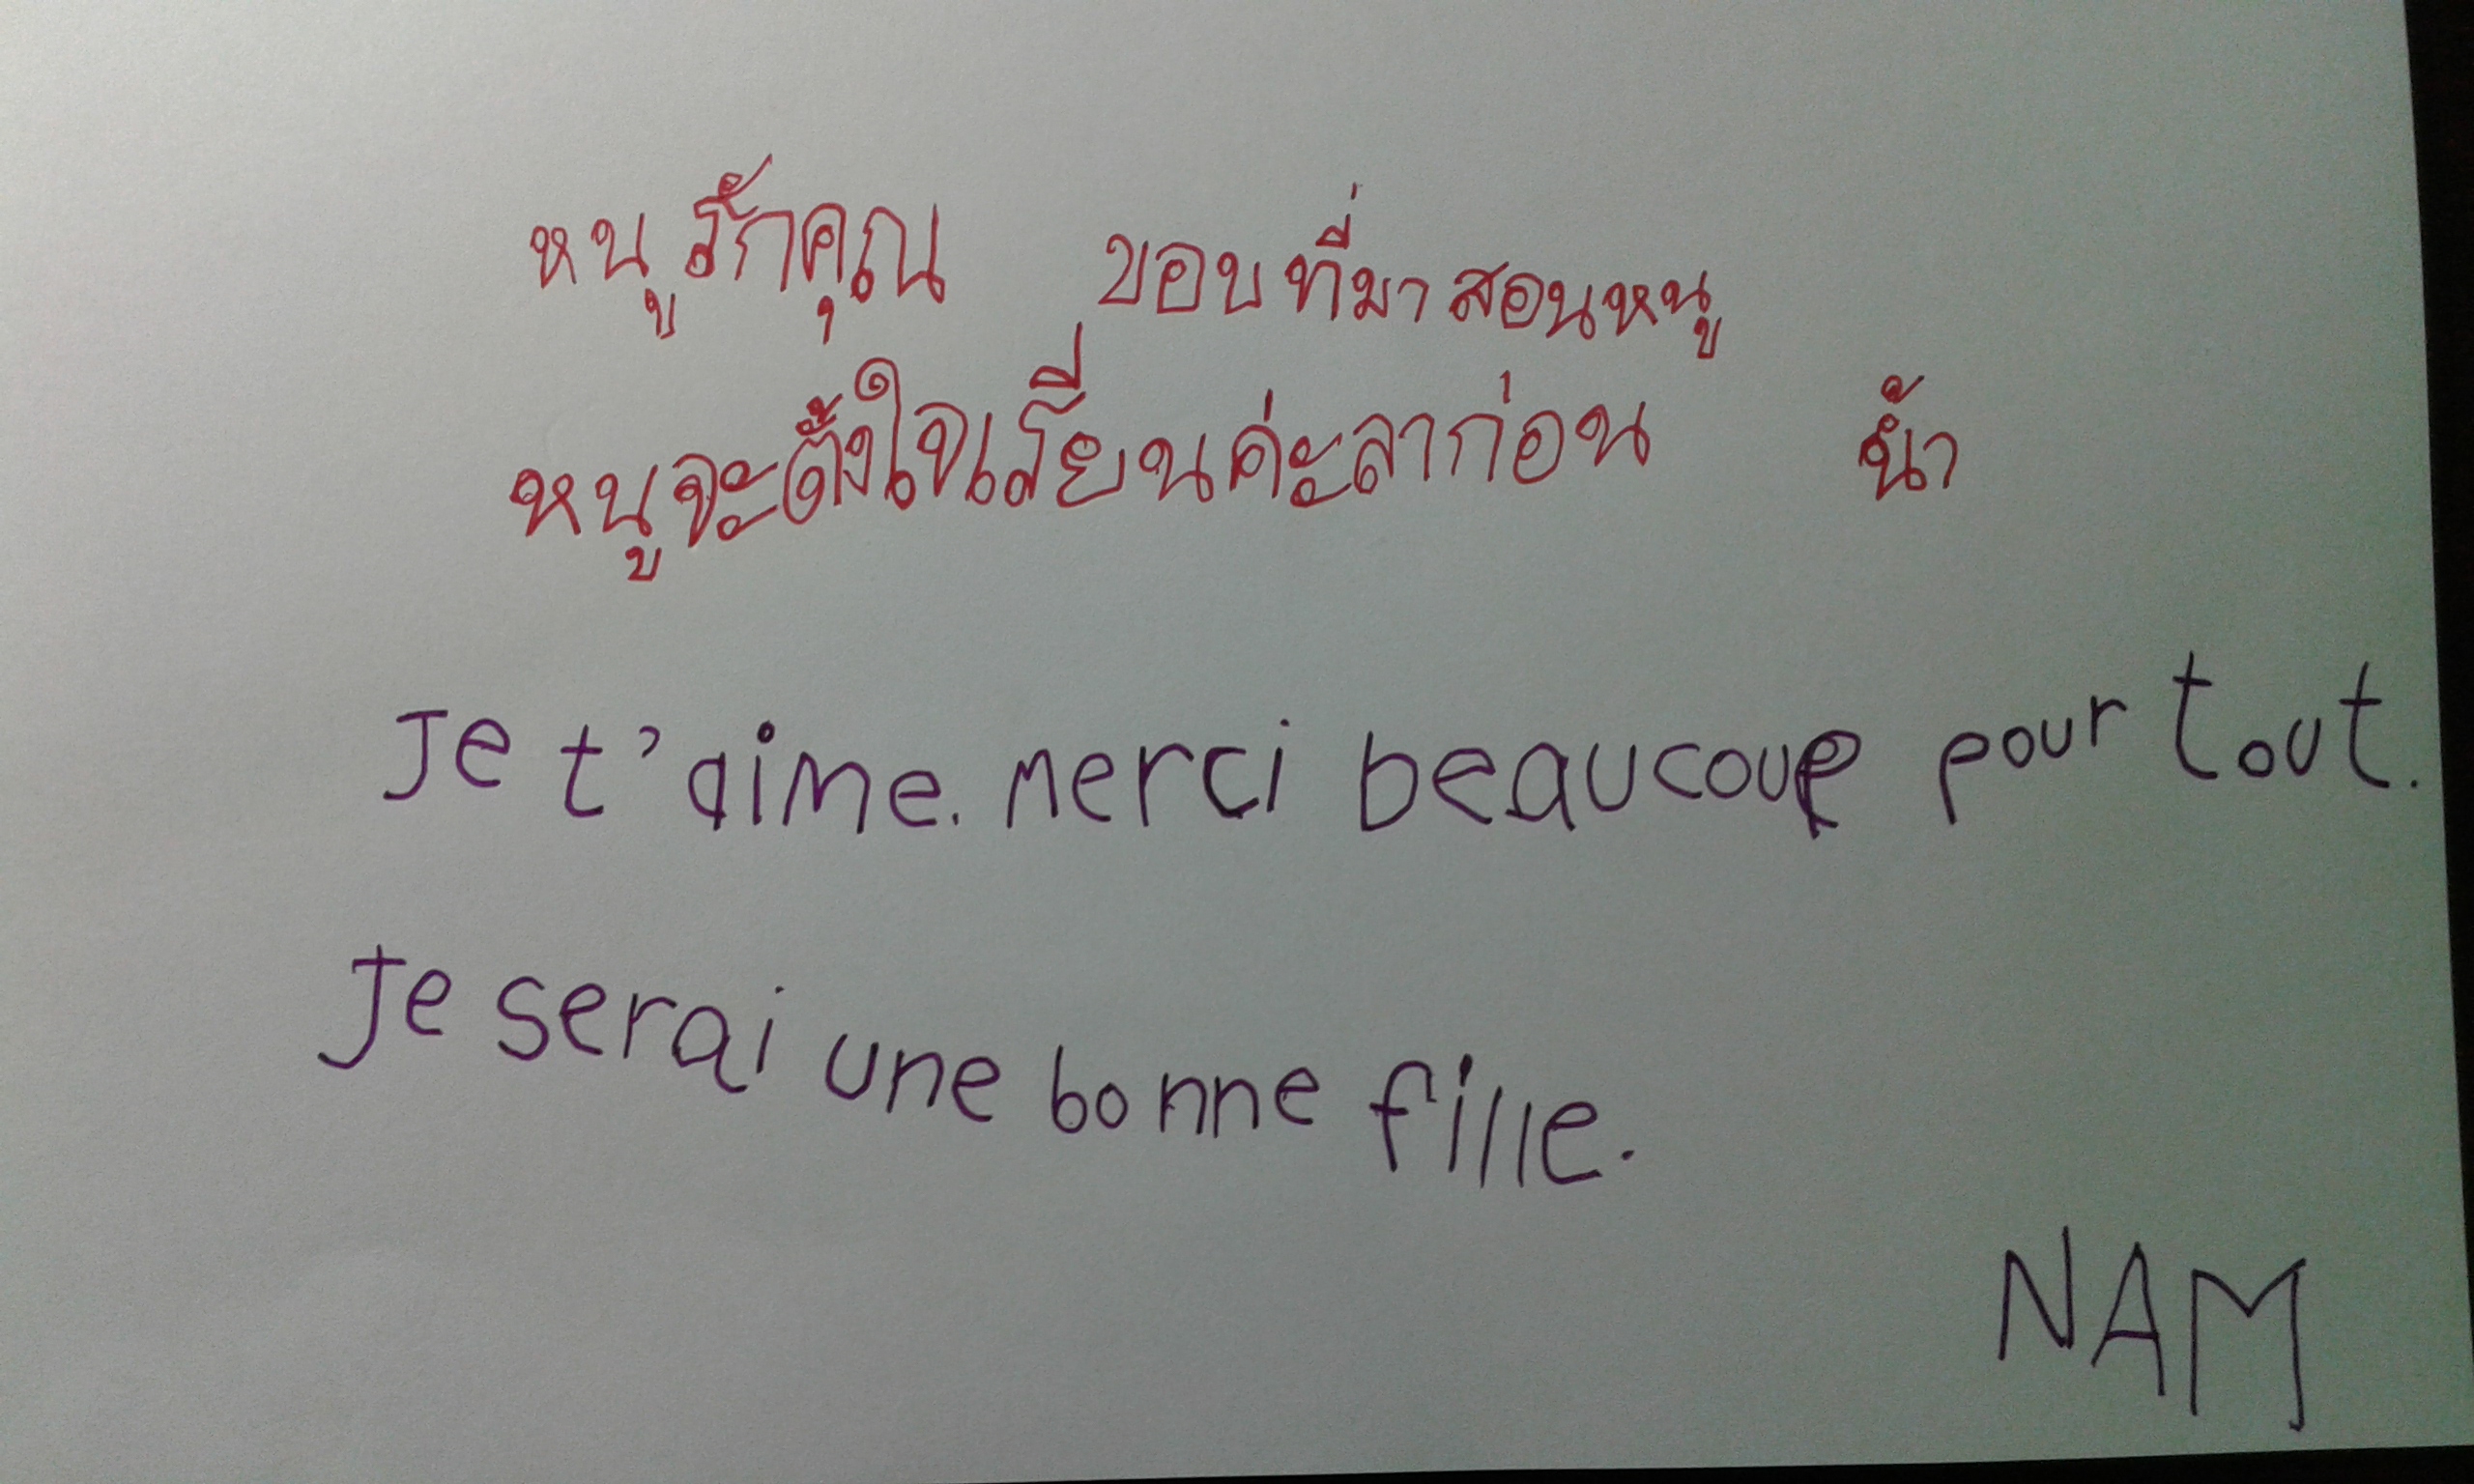 หนูรักคุณ ขอบที่มาสอนหนู
หนูจะตั้งใจเรี่ยนค่ะลาก่อน น้ำ
Je t'aime. merci beaucoup pour tout.
Je serai une bonne fille.
NAM